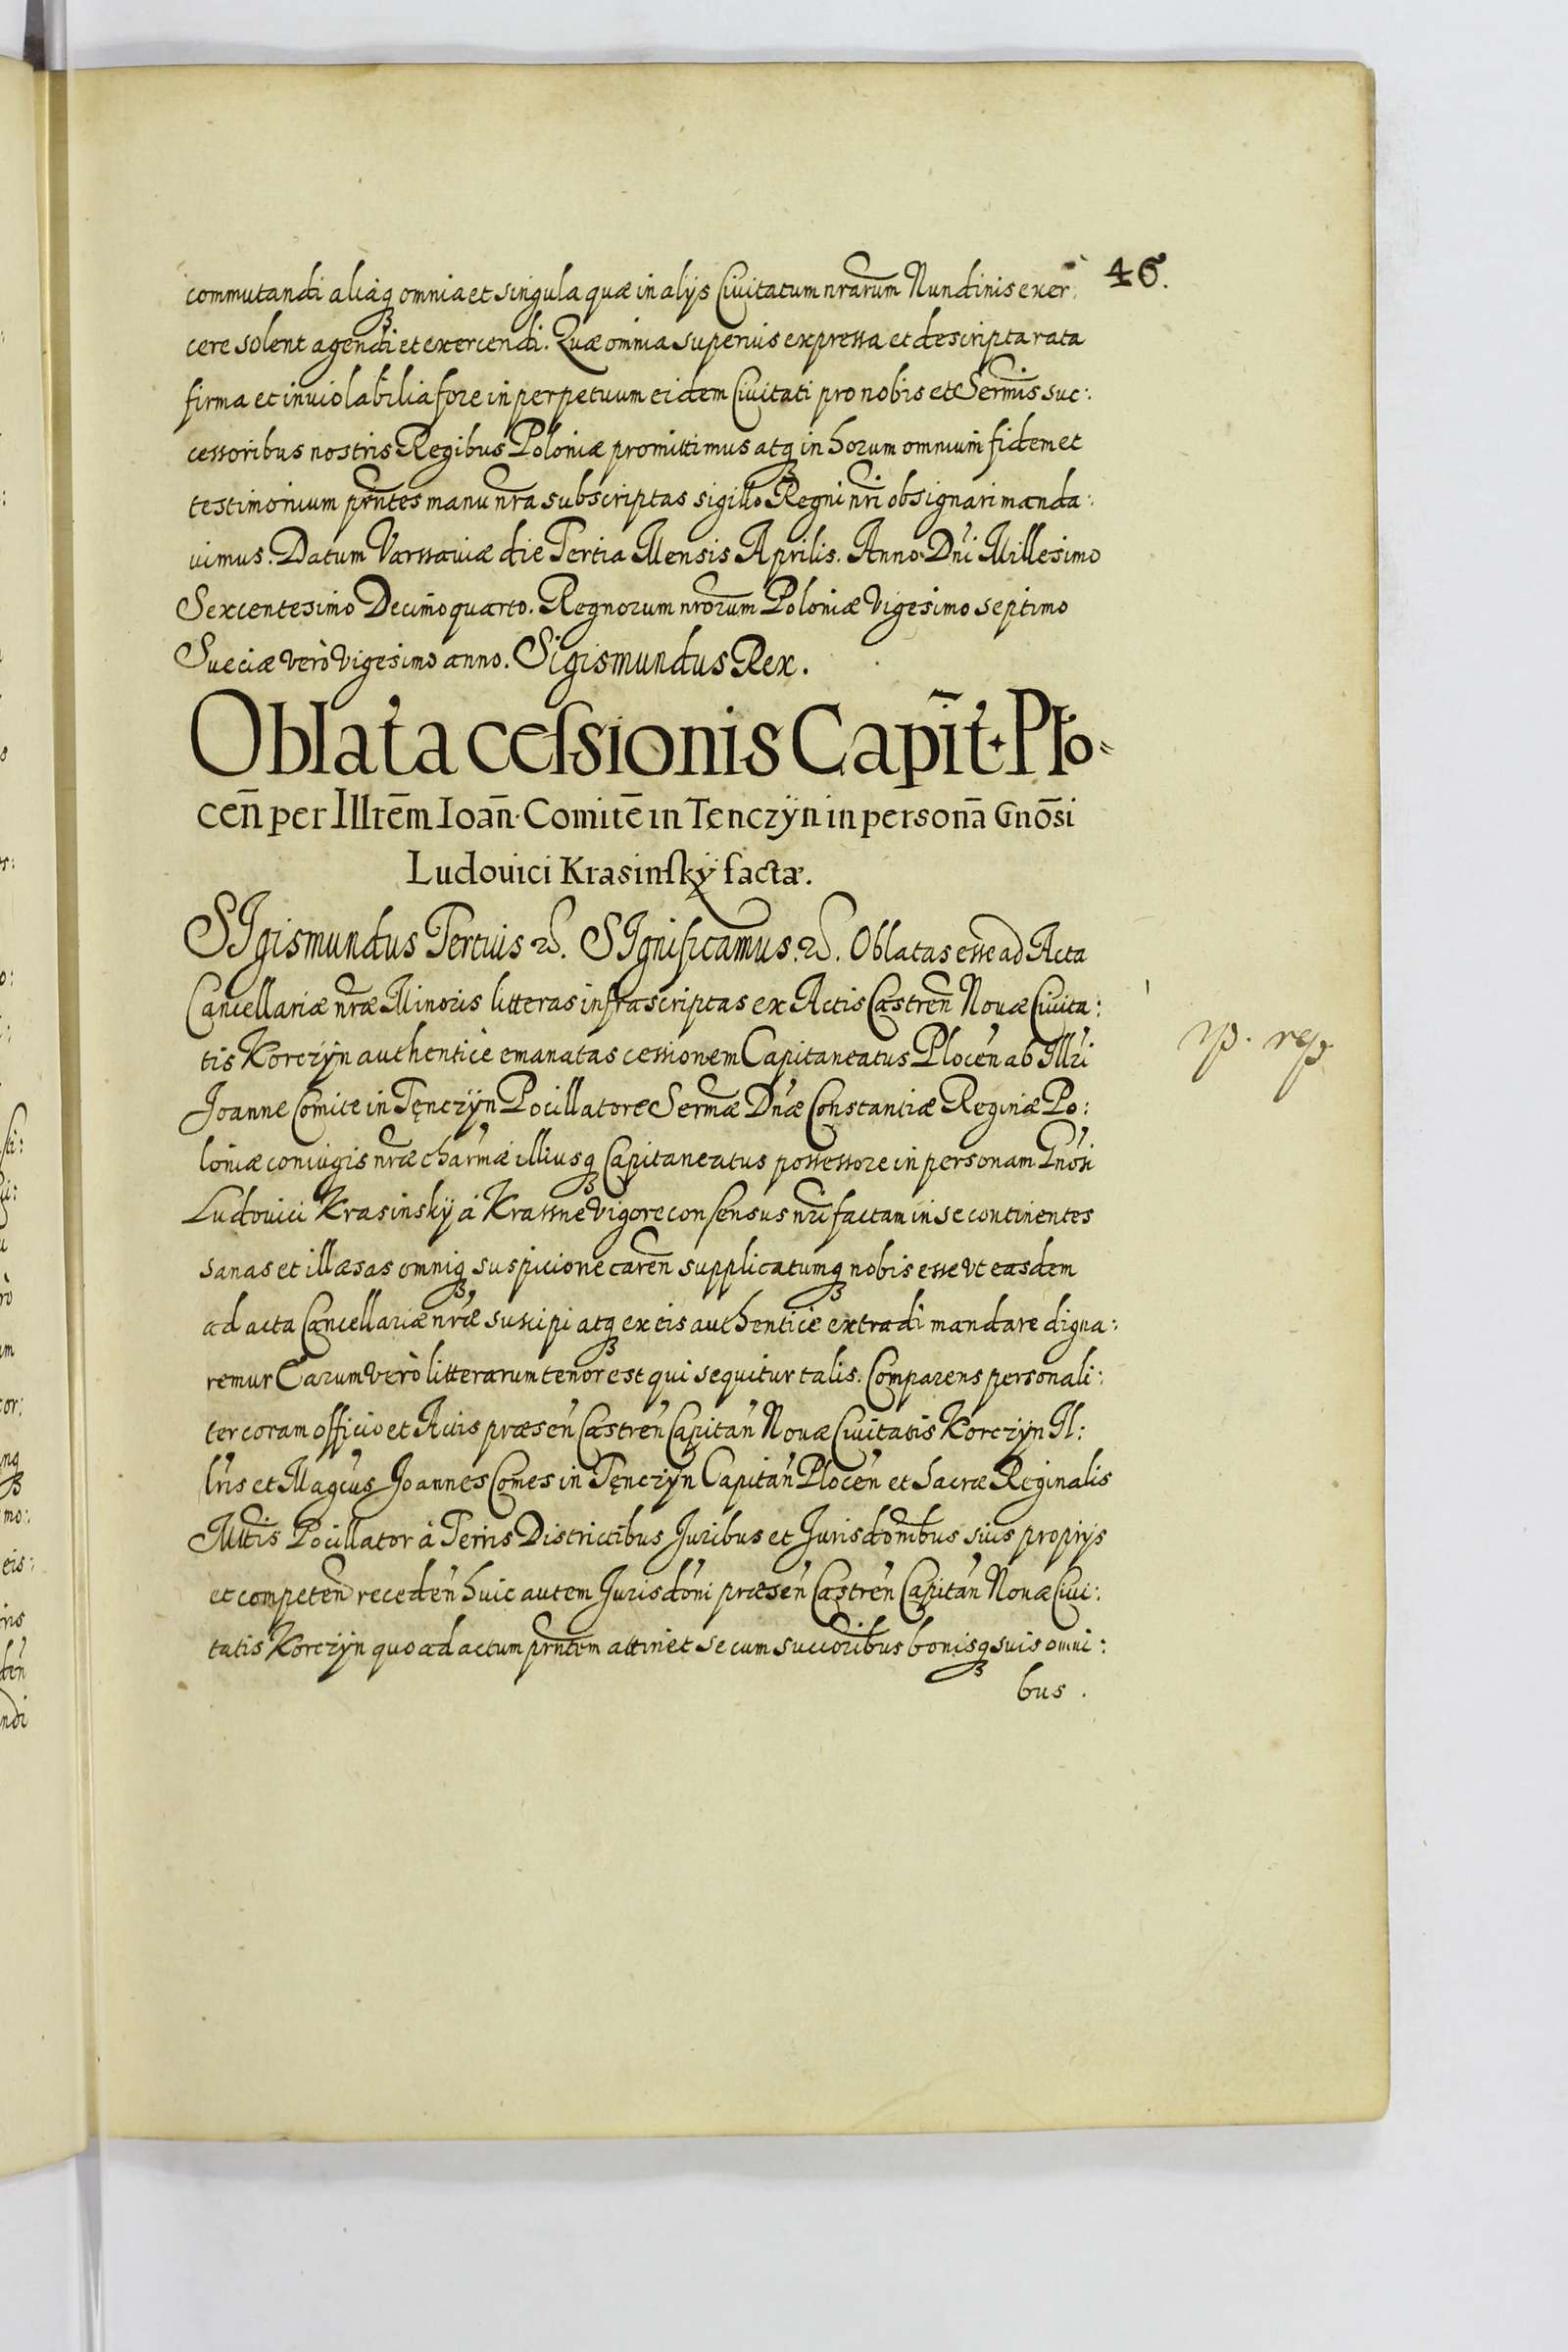 46.
commutandi aliaq₃ omnia et singula quæ in alijs Ciuitatum nrarum Nundinis exer:
cere solent agendi et exercendi. Quæ omnia superius expressa et descripta rata
firma et inuiolabilia fore in perpetuum eidem Ciuitati pro nobis et Sermis suc:
cessoribus nostris Regibus Poloniæ promittimus atq₃ in horum omnium fidem et
testimonium prntes manu nra subscriptas sigillo Regni nri obsignari manda:
vimus. Datum Varssauiæ die Tertia Mensis Aprilis. Anno Dni Millesimo
Sexcentesimo Decimo quarto. Regnorum nrorum Poloniæ Vigesimo septimo
Sueciæ verò vigesimo anno. Sigismundus Rex.
Oblata ceſsionis Capit̄. Pło-
ceñ per Illrem̄ Ioañ. Comitē in Tenczÿn in personā Gnōsi
Ludouici Krasinſkÿ factæ.
SIgismundus Tertius &. SIgnificamus. &. Oblatas esse ad Acta
Cancellariæ nræ Minoris litteras infrascriptas ex Actis Castren Nouæ Ciuita:
tis Korczÿn authenticè emanatas cessionem Capitaneatus Plocen ab Illri
Joanne Comite in Tęnczÿn Pocillatore Sermæ Dnæ Constantiæ Reginæ Po:
loniæ coniugis nræ charmæ illiusq₃ Capitaneatus possessore in personam Gnosi
Ludouici Krasinskÿ à Krassne vigore consensus nri factam in se continentes
sanas et illæsas omniq₃ suspicione caren supplicatumq₃ nobis esse vt easdem
ad acta Cancellariæ nræ suscipi atq₃ ex eis authenticè extradi mandare digna:
remur Earum verò litterarum tenor est qui sequitur talis. Comparens personali:
ter coram officio et Actis præsen Castren Capitan Nouæ Ciuitatis Korczÿn Il:
lris et Magcus Joannes Comes in Tęnczÿn Capitan Plocen et Sacræ Reginalis
Mttis Pocillator à Terris Districtibus Juribus et Jurisdonibus suis proprijs
et competen receden huic autem Jurisdoni præsen Castren Capitan Nouæ Ciui:
tatis Korczÿn quo ad actum prntem attinet se cum succoribus bonisq₃ suis omni:
bus.